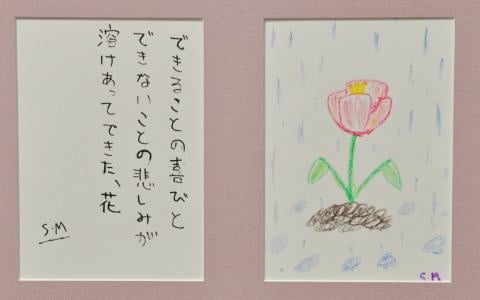 できることの喜びと
できないことの悲しみが
溶けあってできた、花
S.M
S.M